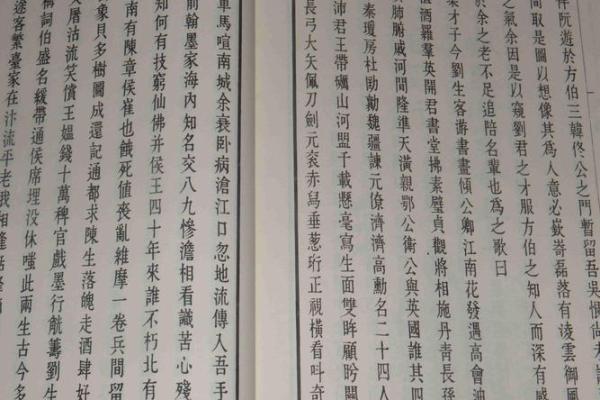 阮遊於方伯三韓佟公之門暫留吾吳惆尚
間取是圖以想像其為人意必嶔崎磊落有淩雲御風
之氣余因是以窺劉君之才服方伯之知人而深有感
於余之老不足追陪名輩也為之歌曰
梁才子今劉生客游書畫傾公卿江南花發遇高會油
酒羅羣英開君書堂拂素璧貞觀將相施丹青長孫
肺腑戚河間隆準天潢親鄂公衛公與英國誰其四
秦瓊房杜勛勷魏彊諫元僚濟濟高勳名二十四人
沛君王帶礪山河盟千載懸毫寫生面雙眸顧盼關
長弓大矢佩刀劍元衮赤舄垂葱珩正視橫看叫奇
車馬喧南城余衰卧病滄江口忽地流傳入吾手
前翰墨家海內知名交八九慘澹相看識苦心殘
知何有技窮仙佛并侯王四十年來誰不朽北有
南有陳章侯崔也餓死值喪亂維摩一卷兵間留
象貝多樹圖成還記通都求陳生落魄走酒肆好
沽流笑償王媼錢十萬稗官戲墨行觥籌劉生
稱詞伯盛名緩帶通侯席埋没休嗤此兩生古今多
途客繁臺家在汴流平老我相逢話